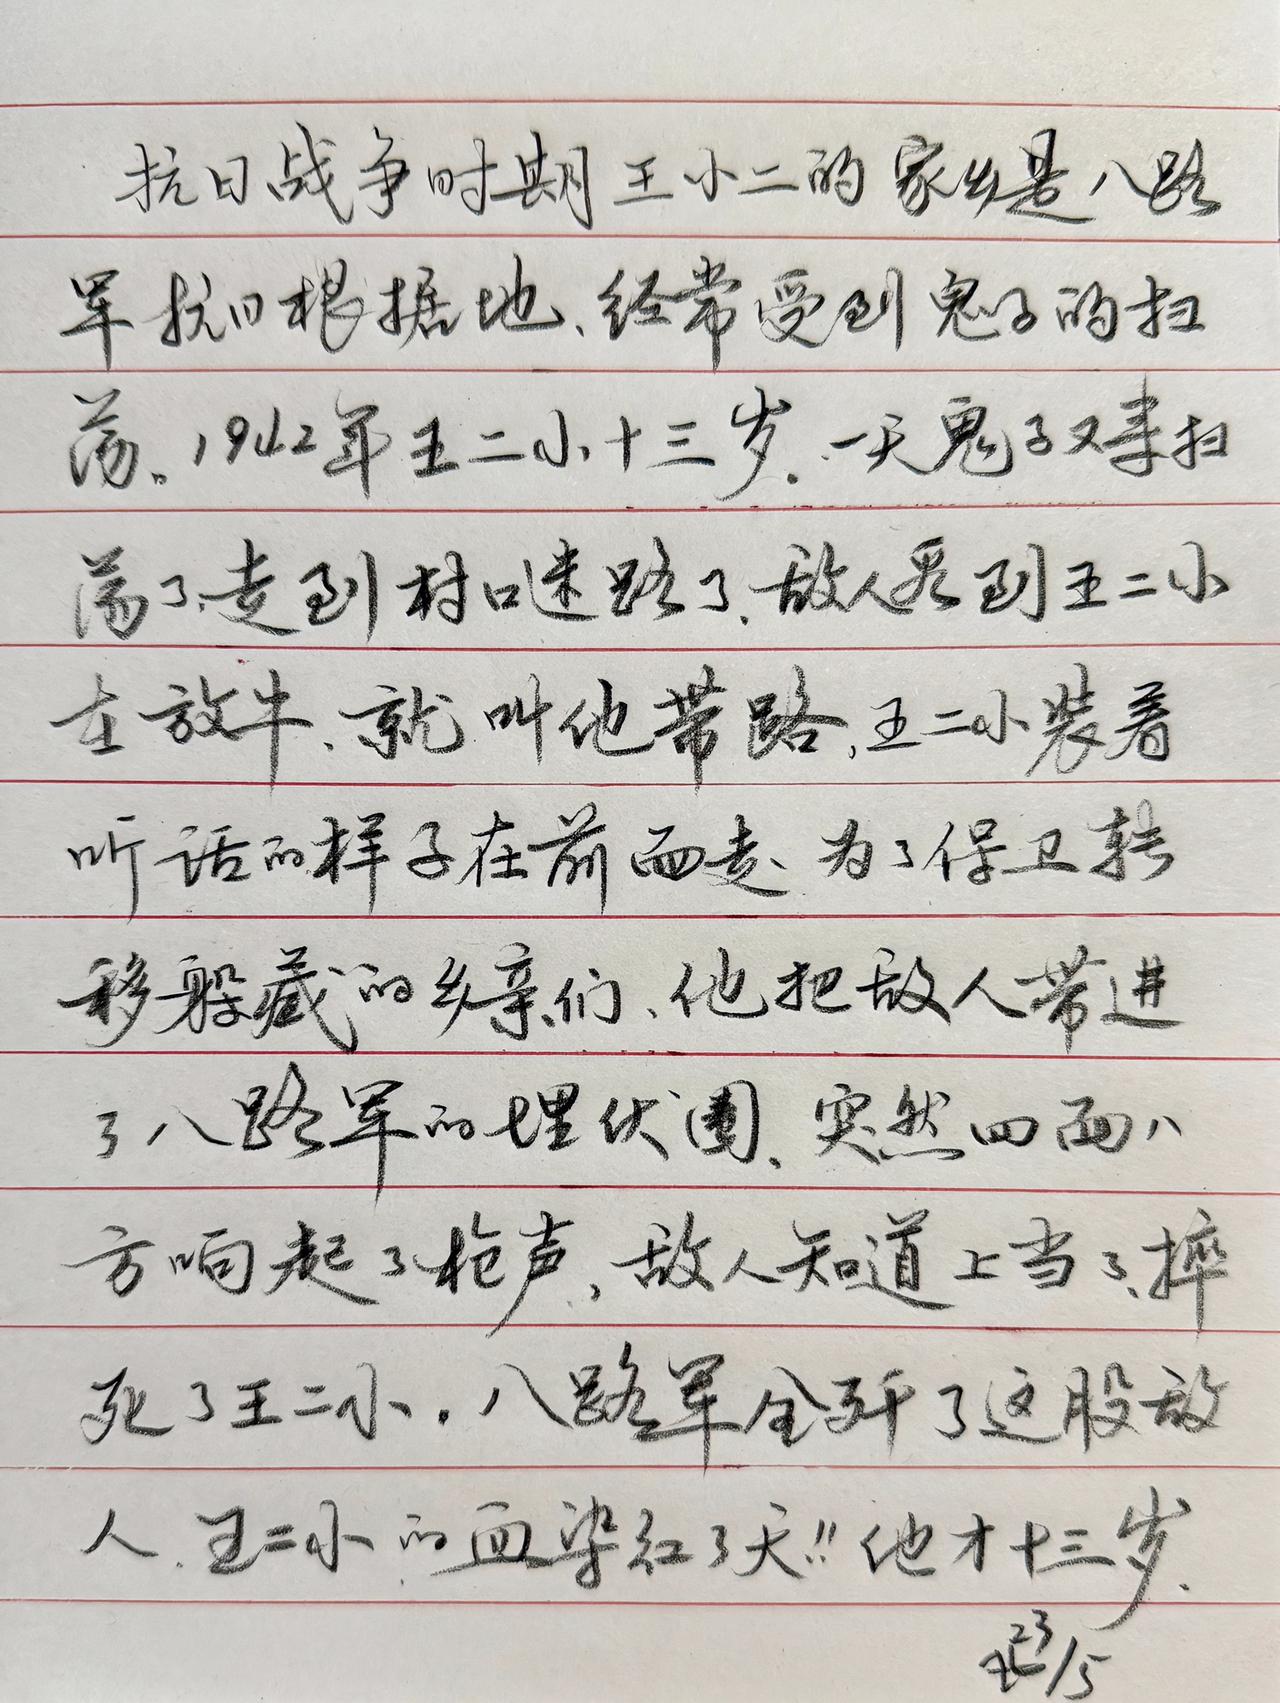 抗日战争时期王小二的家乡是八路
军抗日根据地、经常受到鬼子的扫
荡。1942年王二小十三岁.一天鬼子又来扫
荡了、走到村口迷路了、敌人看到王二小
在放牛、就叫他带路、王二小装着
听话的样子在前面走、为了保卫转
移躲藏的乡亲们、他把敌人带进
了八路军的埋伏圈、突然四面八
方响起了枪声、敌人知道上当了、摔
死了王二小.八路军全歼了这股敌
人、王二小的血染红了天!!他才十三岁、
23/5